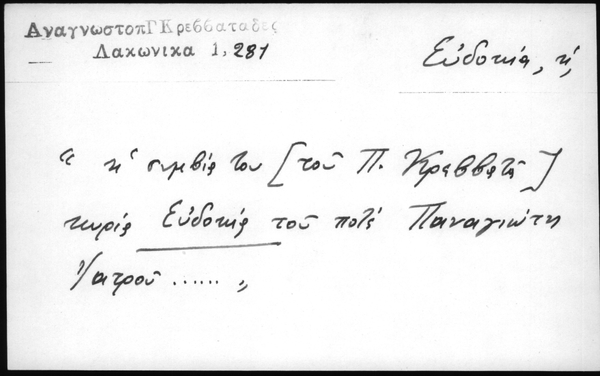 ΑναγνωστοπΓΚρεββαταδες
Λακωνικα 1, 281
Εὐδοκία, ἡ,
“ ἡ συμβία του [τοῦ Π. Κρεββατᾶ]
κυρία Εὐδοκία τοῦ ποτέ Παναγιώτη
Ἰατροῦ ...... „